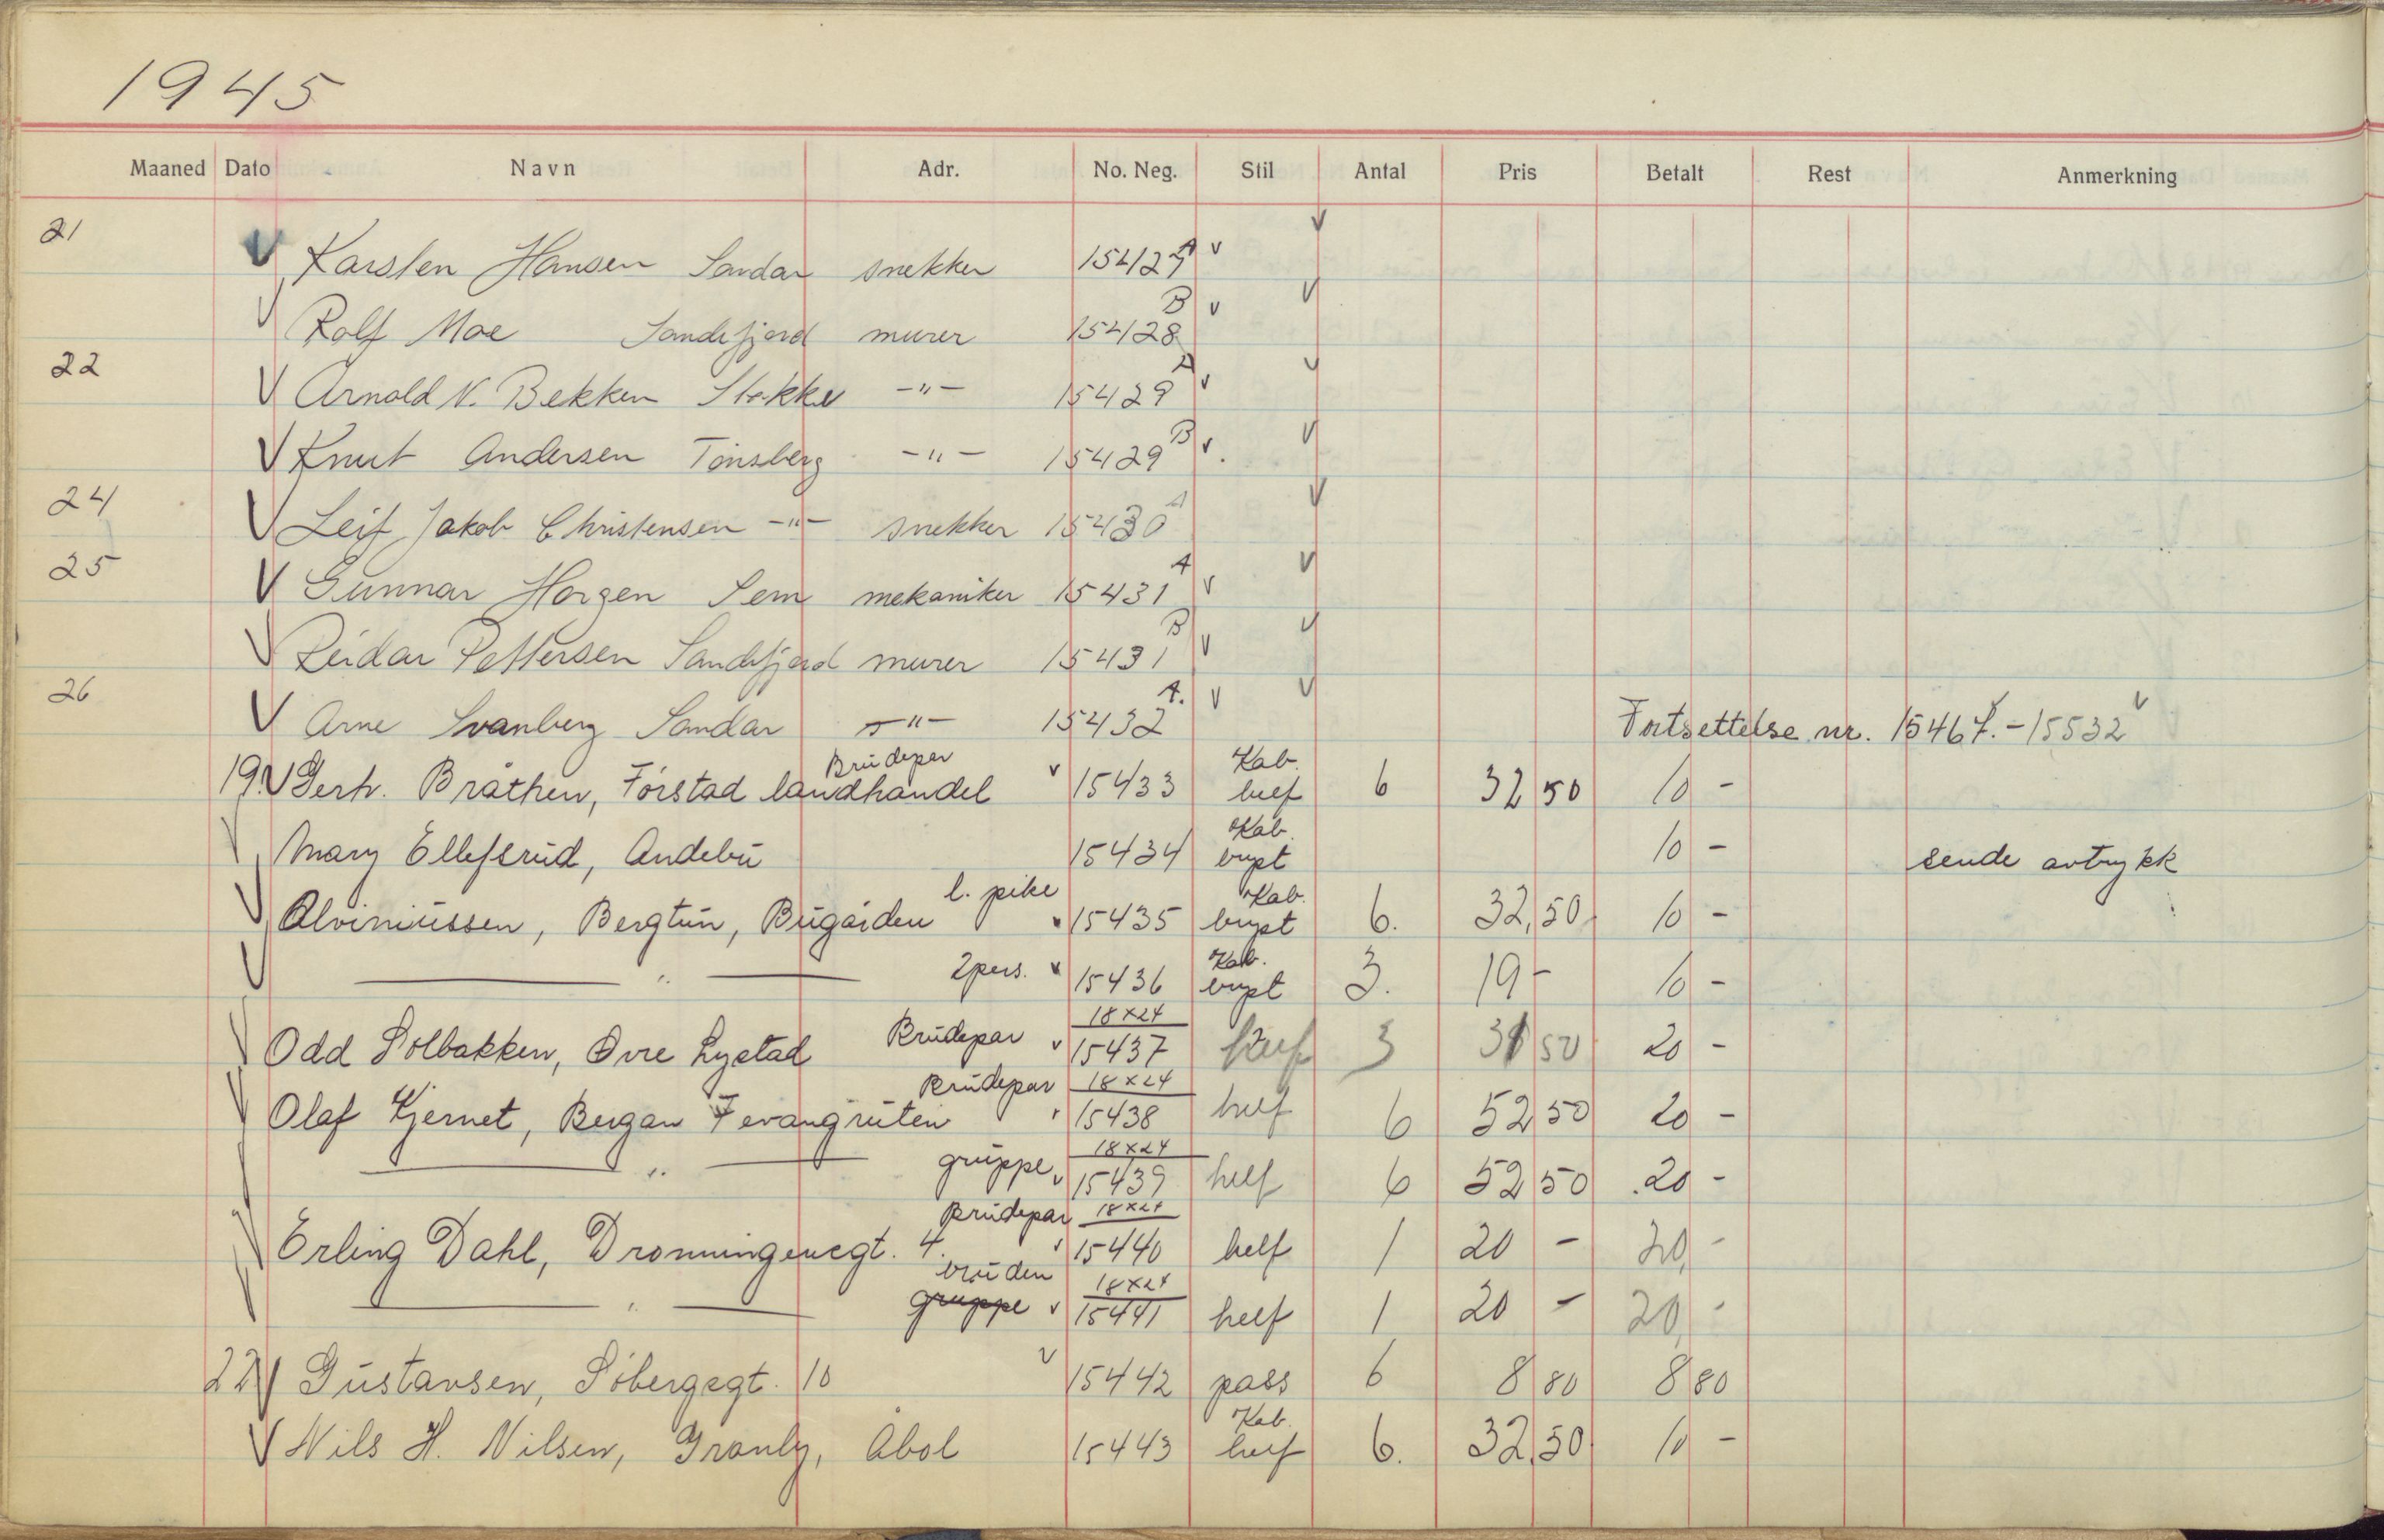 1945
Maaned Dato Navn Adr. No. Neg. Stil Antal Pris Betalt Rest Anmerkning
21 V Karsten Hansen Sandar snekker 15427 A v v
V Rolf Moe Sandefjord murer 15428 B v v
22 V Arnold N. Bekken Stokke -"- 15429 A v v
V Knut Andersen Tønsberg -"- 15429 B v. v
24 V Leif Jakob Christensen -"- snekker 15430 A v
25 V Gunnar Horgen Sem mekaniker 15431 A v v
V Reidar Pettersen Sandefjord murer 15431 B v v
26 V Arne Svanberg Sandar -"- 15432 A. v v Fortsettelse nr. 15467.-15532 v
19. V Gerh. Bråthen, Førstad landhandel Brudepar v 15433 Kab. helf 6 32 50 10 -
V Mary Ellefsrud, Andebu 15434 Kab. bryst 10 - sende avtrykk
V Alvimussen, Bergtun, Bugården l. pike v 15435 Kab. bryst 6. 32,50 10 -
V —— " —— 2 pers. v 15436 Kab. bryst 3. 19 - 10 -
V Odd Solbakken, Øvre Lystad Brudepar v 18x24 15437 3 31 50 20 -
V Olaf Kjernet, Bergan Fevangruten Brudepar v 18x24 15438 helf 6 52 50 20 -
—— " —— gruppe v 18x24 15439 helf 6 52 50 20 -
V Erling Dahl, Dronningensgt. 4. Brudepar v 18x24 15440 helf 1 20 - 20 -
—— " —— bruden gruppe v 18x24 15441 helf 1 20 - 20 -
22 V Gustavsen, Søbergsgt. 10 v 15442 pass 6 8 80 8 80
V Nils H. Nilsen, Granly, Åbol 15443 Kab. helf 6. 32,50 10 -